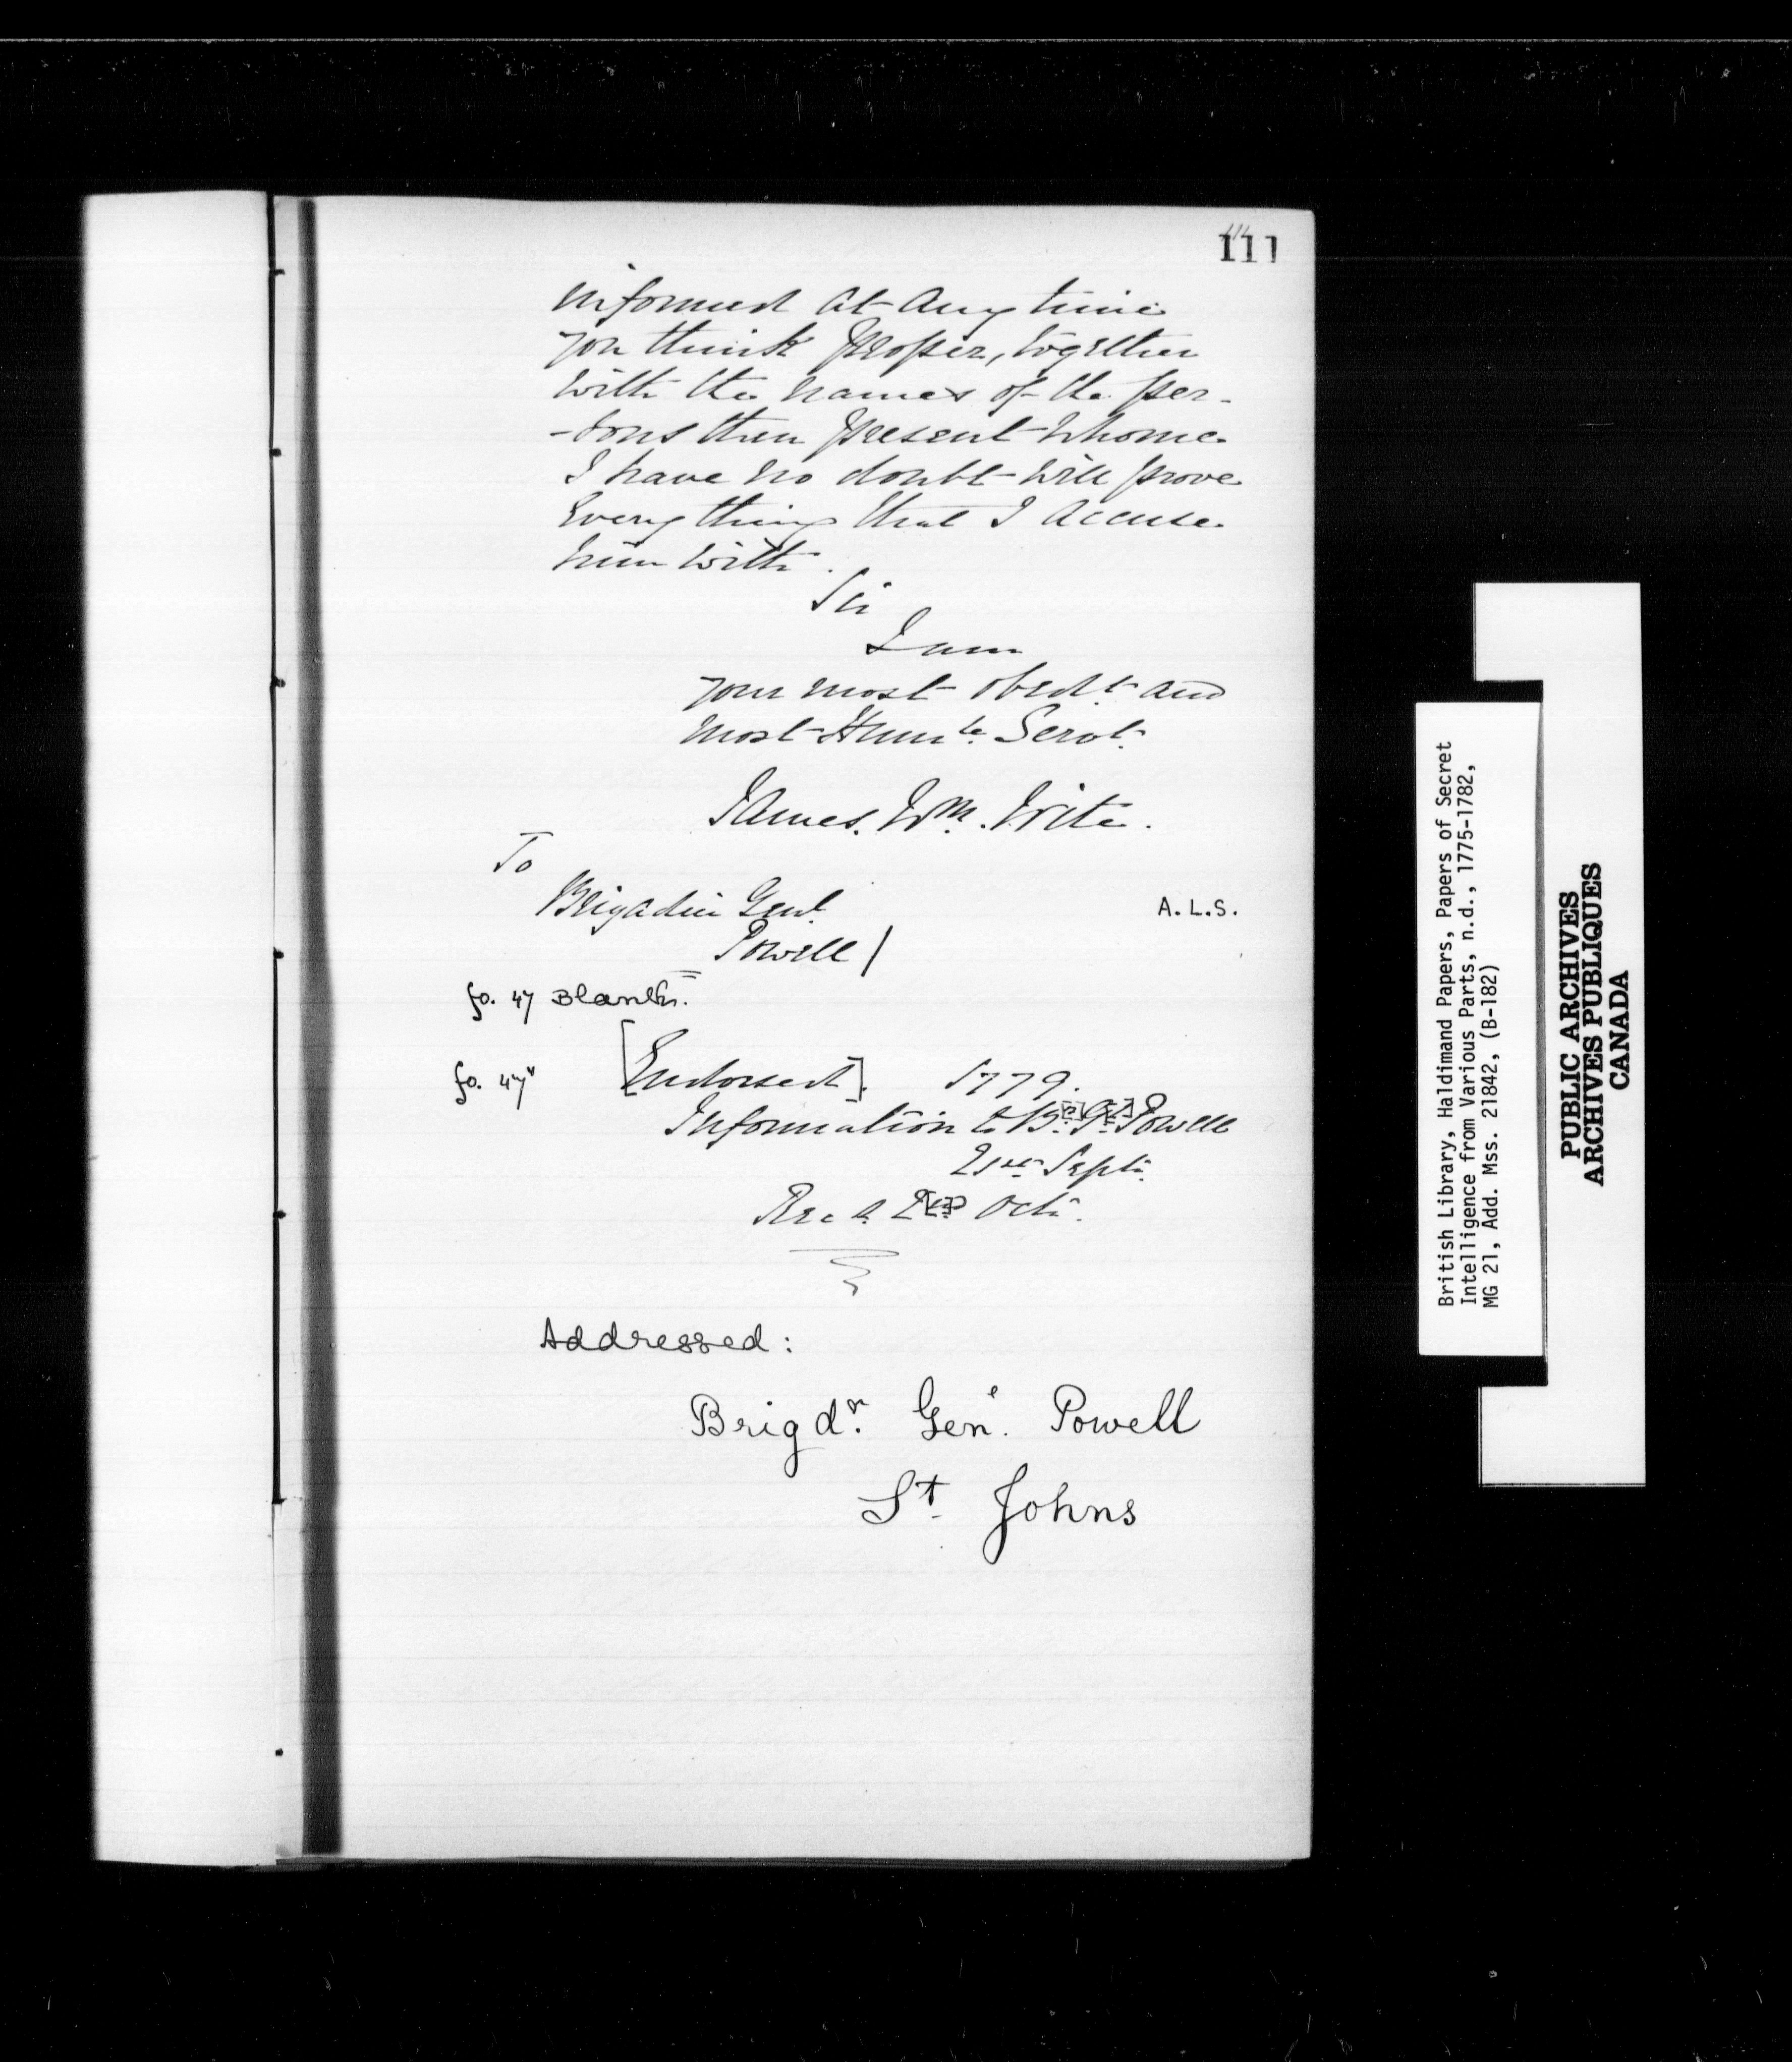 111
informed at any time
you think proper, together
with the names of the per-
-sons then present whome
I have no doubt will prove
Every thing that I accuse
him with.
Sir
I am
your most obedt. and
most Humle. Servt.
James. Wm. Write.
To
Brigadier Genl.
Powell /
A.L.S.
fo. 47 Blank.
fo. 47v [Endorsed]. 1779.
Information to Br. Gl. Powell
21st Septr.
Recd. 2nd Octr.
Addressed:
Brigdr. Genl. Powell
St. Johns
British Library, Haldimand Papers, Papers of Secret
Intelligence from Various Parts, n.d., 1775-1782,
MG 21, Add. Mss. 21842, (B-182)
PUBLIC ARCHIVES
ARCHIVES PUBLIQUES
CANADA